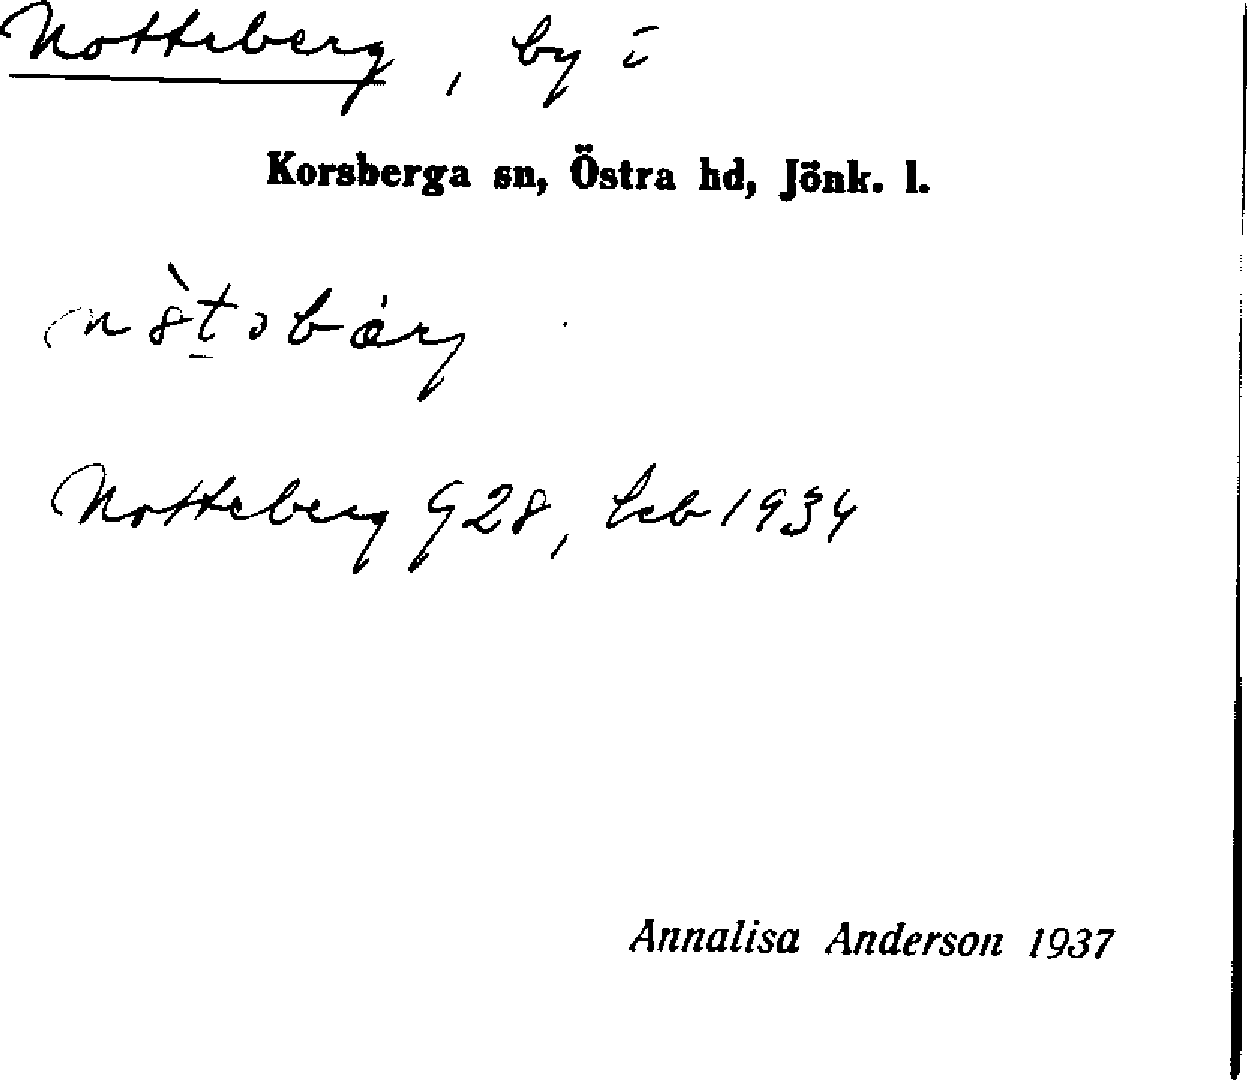 Notteberg, by i
Korsberga sn, Östra hd, Jönk. l.
Notteberg G28, leb 1934
Annalisa Anderson 1937